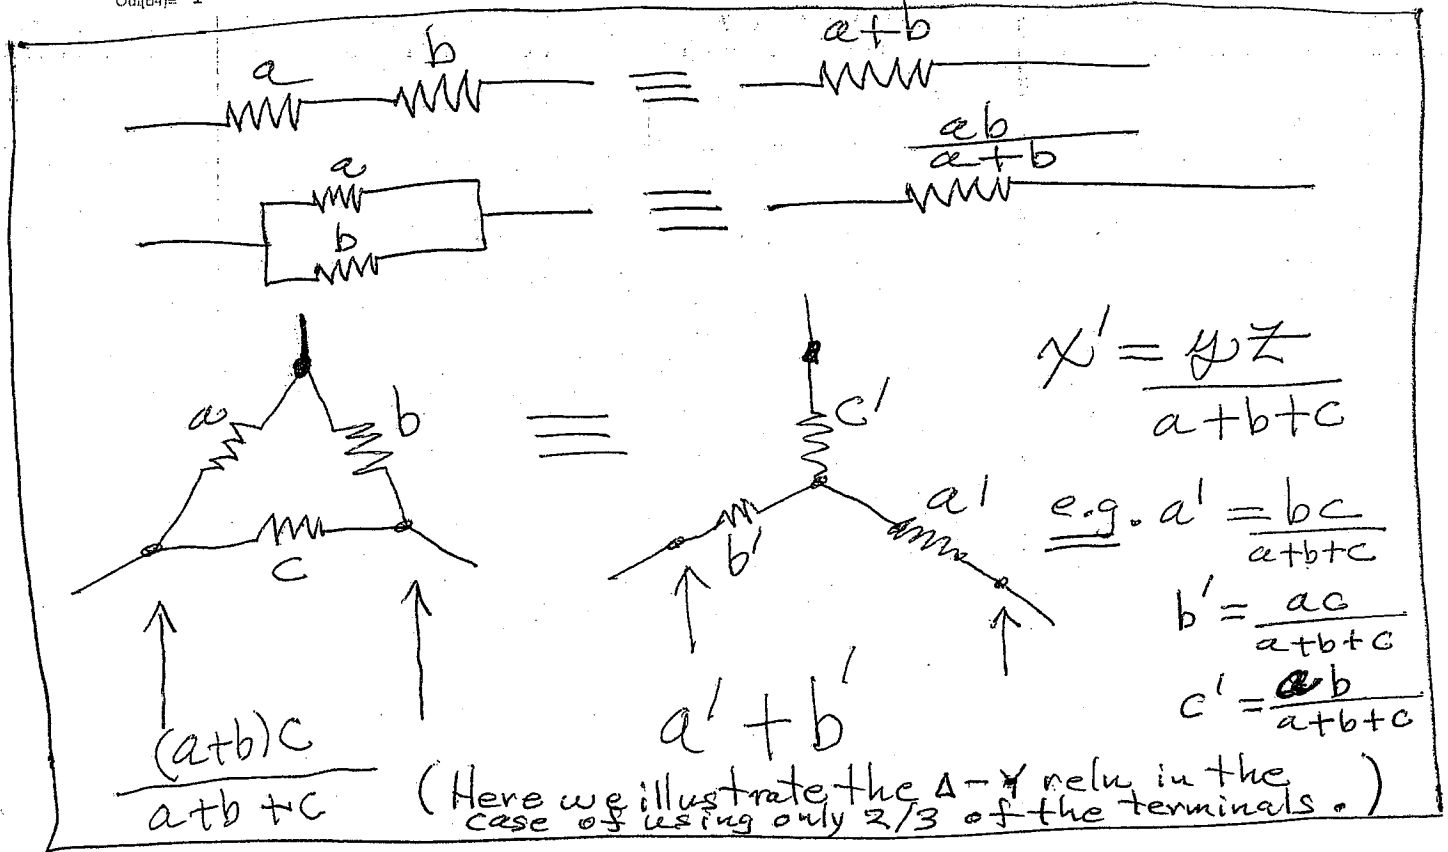 Out[64]= 1
a b ≡ a+b
a b ≡ ab/(a+b)
a b c ≡ c' b' a'
x' = yz/(a+b+c)
e.g. a' = bc/(a+b+c)
b' = ac/(a+b+c)
c' = ab/(a+b+c)
(a+b)c/(a+b+c)
a' + b'
(Here we illustrate the Δ-Y reln in the
case of using only 2/3 of the terminals.)